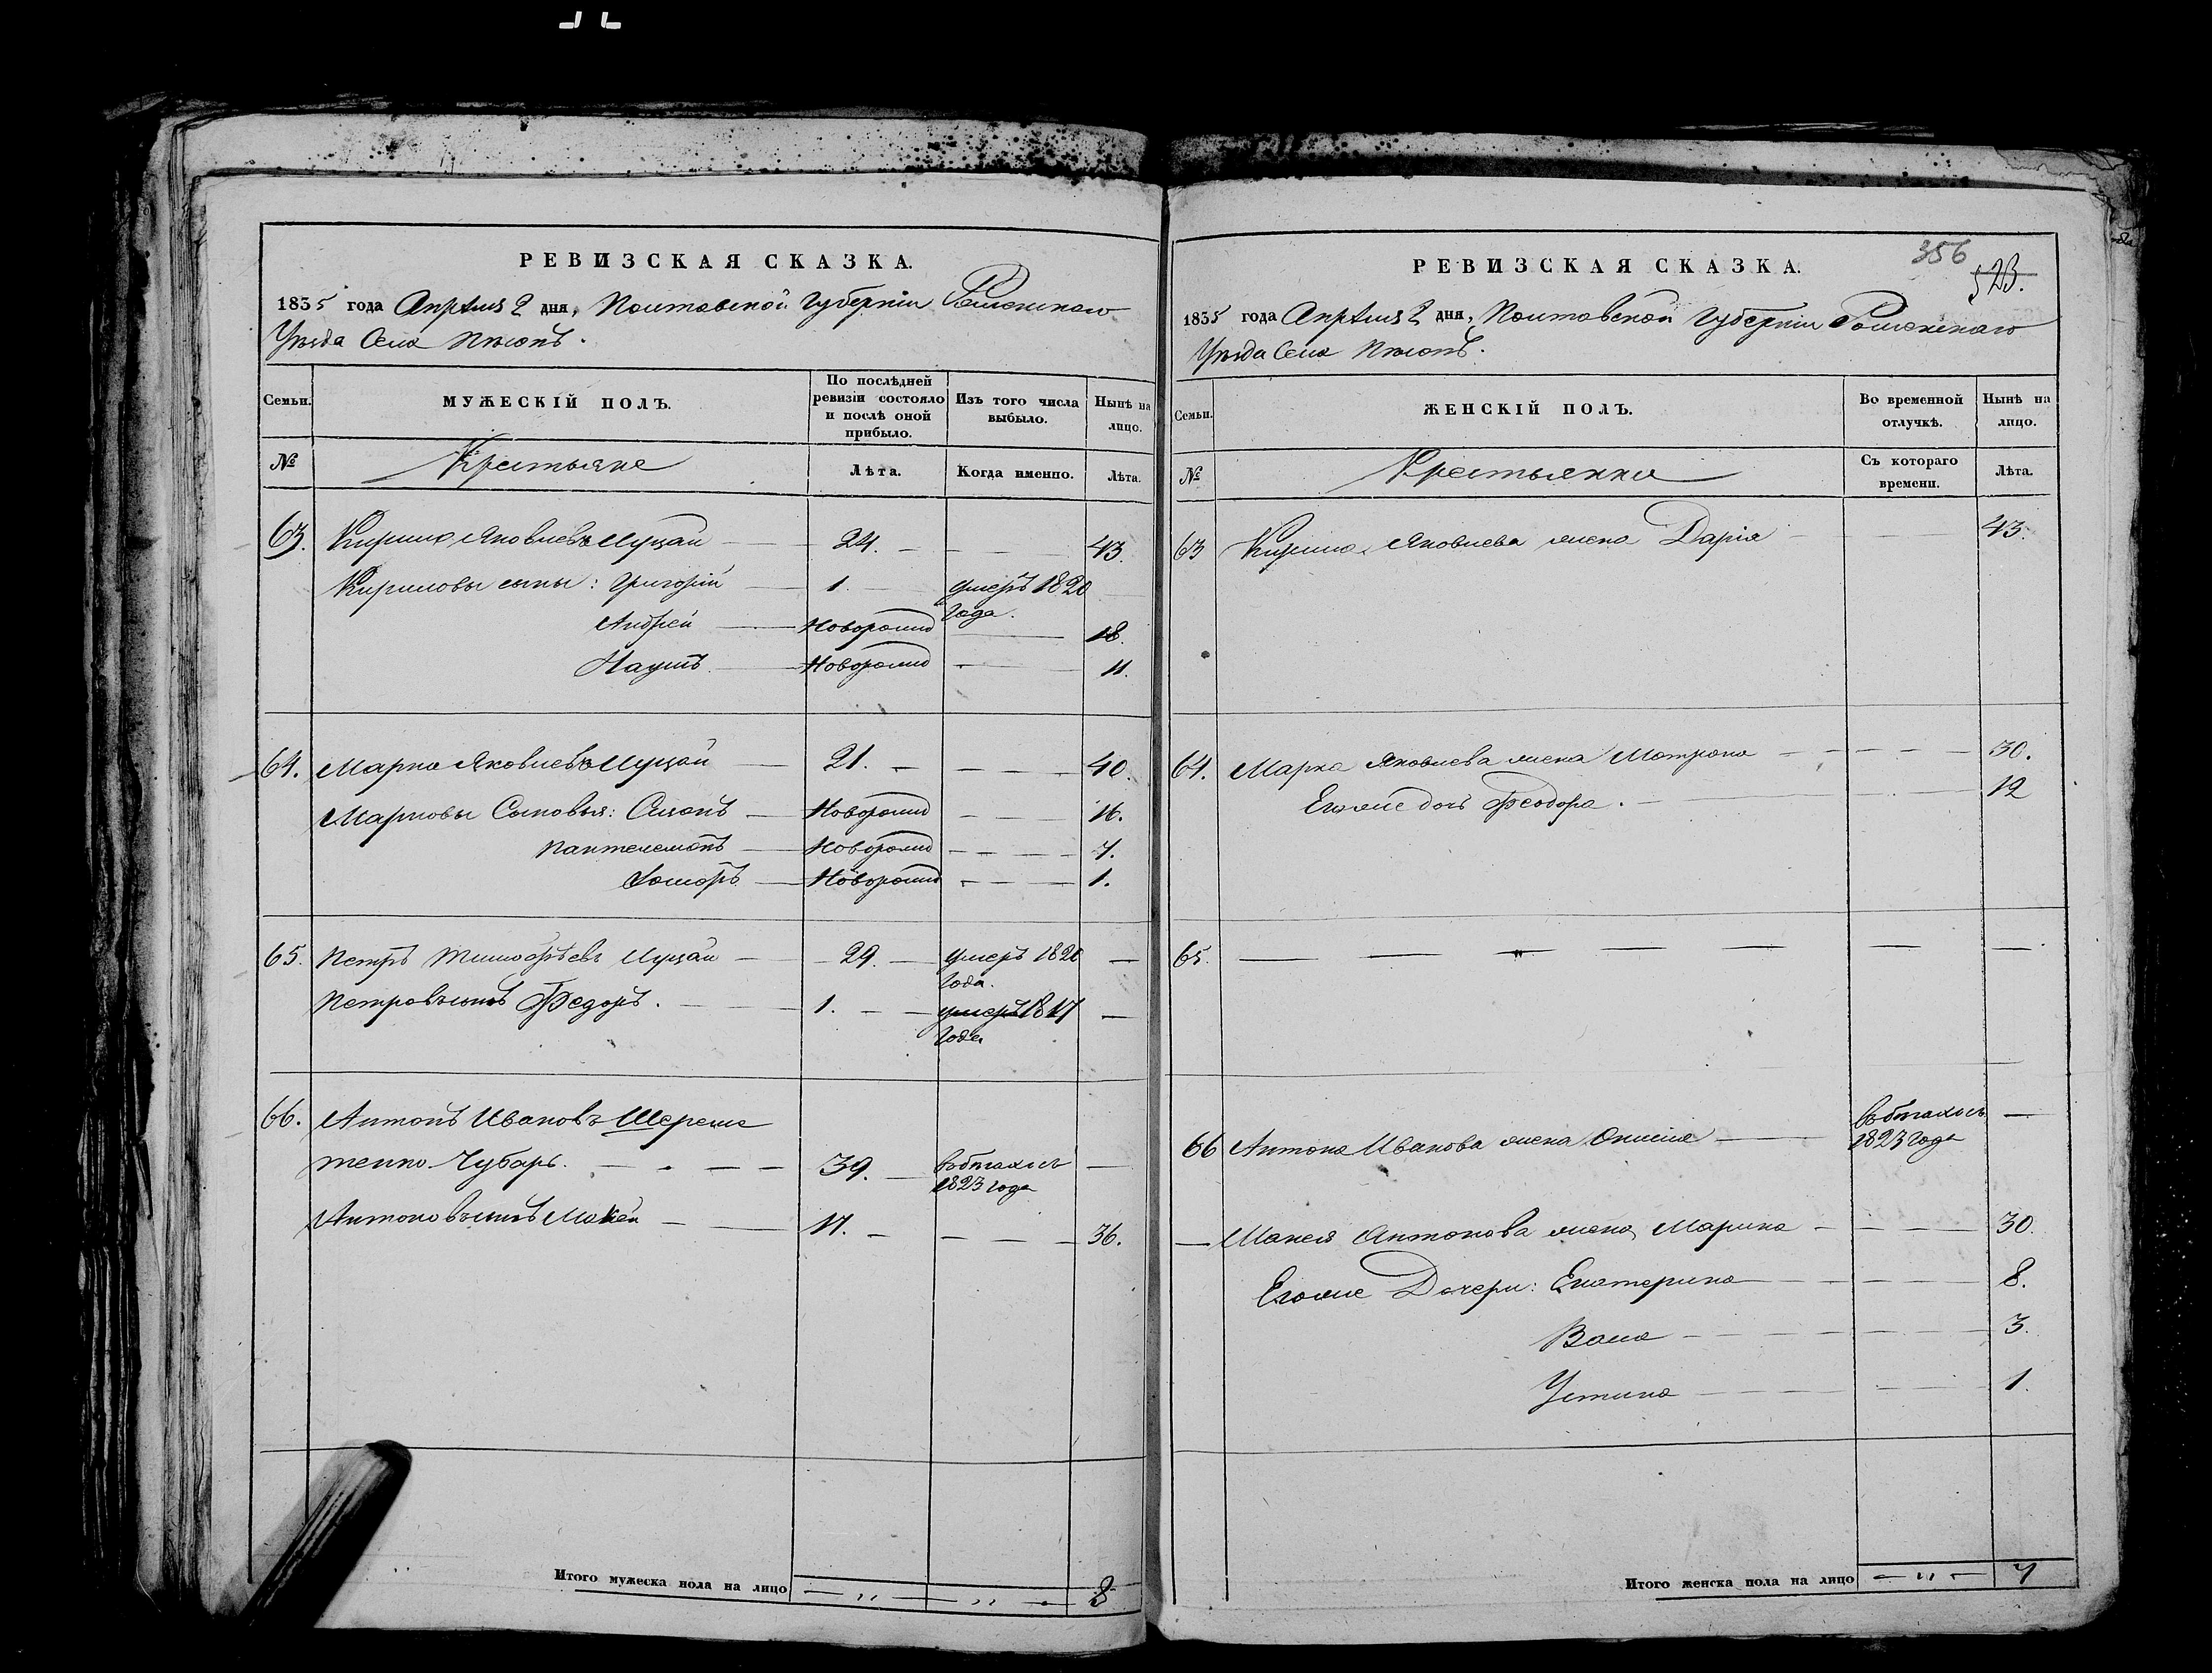 РЕВИЗСКАЯ СКАЗКА.
1835 года Апрѣля 2 дня, Полтавской Губерніи Роменскаго
Уѣзда Села
Семьи.
МУЖЕСКІЙ ПОЛЪ.
По послѣдней ревизіи состояло и послѣ оной прибыло.
Изъ того числа выбыло.
Нынѣ на лицо.
№
Крестьяне
Лѣта.
Когда именно.
Лѣта.
63. Кирило Яковлевъ Луцай — 24. — — 43.
Кириловы сыны: Григорій — 1. — умеръ 1820
года.
Андрей — Новорожд — 18.
Наумъ — Новорожд — 11.
64. Марко Яковлевъ Луцай — 21. — — — 40.
Марковы Сыновья: — Новорожд — — 16.
Пантелемонъ — Новорожд — — — 7.
— Новорожд — — — 1.
65. Петръ Тимофѣевъ Луцай — 29. — умеръ 1820 —
года.
Петровъ сынъ Федоръ. — 1. — — умеръ 1817 —
года
66. Антонъ Ивановъ Шереме
тенко Чубарь. — — — 39. — въ бѣгахъ съ —
1823 года
Антоновъ сынъ Мокей — 17. — — — 36.
Итого мужеска пола на лицо — „ — „ — 8
356
523.
РЕВИЗСКАЯ СКАЗКА.
1835 года Апрѣля 2 дня, Полтавской Губерніи Роменскаго
Уѣзда Села
Семьи.
ЖЕНСКІЙ ПОЛЪ.
Во временной отлучкѣ.
Нынѣ на лицо.
№
Крестьянки
Съ котораго времени.
Лѣта.
63 Кирила Яковлева жена Дарія — — — 43.
64. Марка Яковлева жена Матрона — — — 30.
Егоже дочь Феодора. — — 12
65. — — „ — — — — —
66 Антона Иванова жена — въ бѣгахъ съ —
1823 года
— Мокея Антонова жена Марина — — — 30.
Егоже Дочери: Екатерина — — — 8.
— — — 3.
Устина — — — 1.
Итого женска пола на лицо — „ — 7